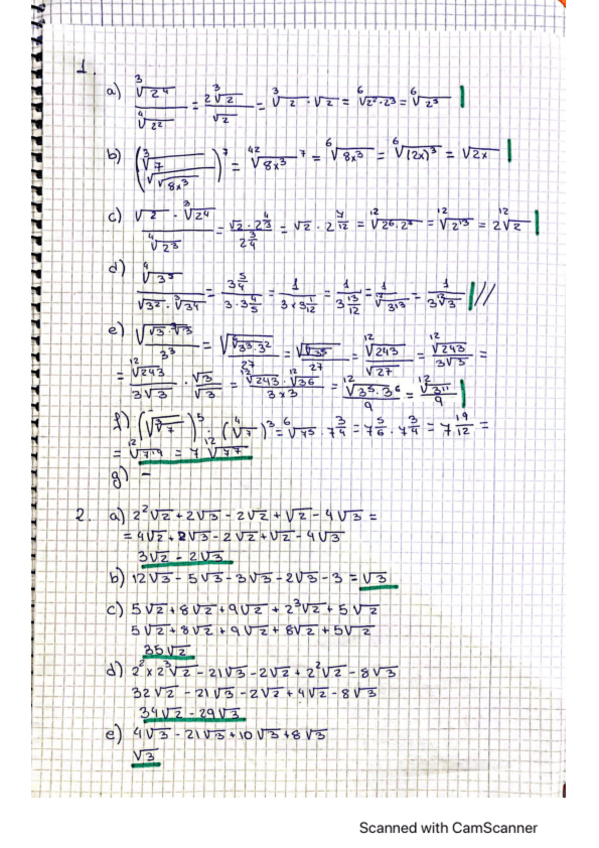 1.
a) ∛(2⁴) / ⁴√(2²) = 2∛2 / √2 = ∛2 · √2 = ⁶√(2²·2³) = ⁶√(2⁵)
b) (∛7 / √√√(8x³))⁷ = ⁴²√(8x³)⁷ = ⁶√(8x³) = ⁶√((2x)³) = √(2x)
c) √2 · ∛(2⁴) / ⁴√(2³) = √2 · 2^(4/3) / 2^(3/4) = √2 · 2^(7/12) = ¹²√(2⁶·2⁷) = ¹²√(2¹³) = 2 ¹²√2
d) ⁴√(3⁵) / √(3²) · ∛(3⁴) = 3^(5/4) / 3·3^(4/5) = 1 / 3×3^(1/12) = 1 / 3^(13/12) = 1 / √(3¹³) = 1 / 3√3
e) √(√3·√3) / 3³ = √(√(3³·3²)) / 27 = √√(3⁵) / 27 = ¹²√243 / √27 = ¹²√243 / 3√3 =
= ¹²√243 / 3√3 · √3 / √3 = ¹²√243 · ¹²√(3⁶) / 3×3 = ¹²√(3⁵·3⁶) / 9 = ¹²√(3¹¹) / 9
f) (√∛7)⁵ · (⁴√7)³ = ⁶√(7⁵) · 7^(3/4) = 7^(5/6) · 7^(3/4) = 7^(19/12) =
= ¹²√(7¹⁹) = 7 ¹²√(7⁷)
g) –
2. a) 2²√2 + 2√3 - 2√2 + √2 - 4√3 =
= 4√2 + 2√3 - 2√2 + √2 - 4√3
3√2 - 2√3
b) 12√3 - 5√3 - 3√3 - 2√3 - 3 = √3
c) 5√2 + 8√2 + 9√2 + 2³√2 + 5√2
5√2 + 8√2 + 9√2 + 8√2 + 5√2
35√2
d) 2² × 2³√2 - 21√3 - 2√2 + 2²√2 - 8√3
32√2 - 21√3 - 2√2 + 4√2 - 8√3
34√2 - 29√3
e) 4√3 - 21√3 + 10√3 + 8√3
√3
Scanned with CamScanner